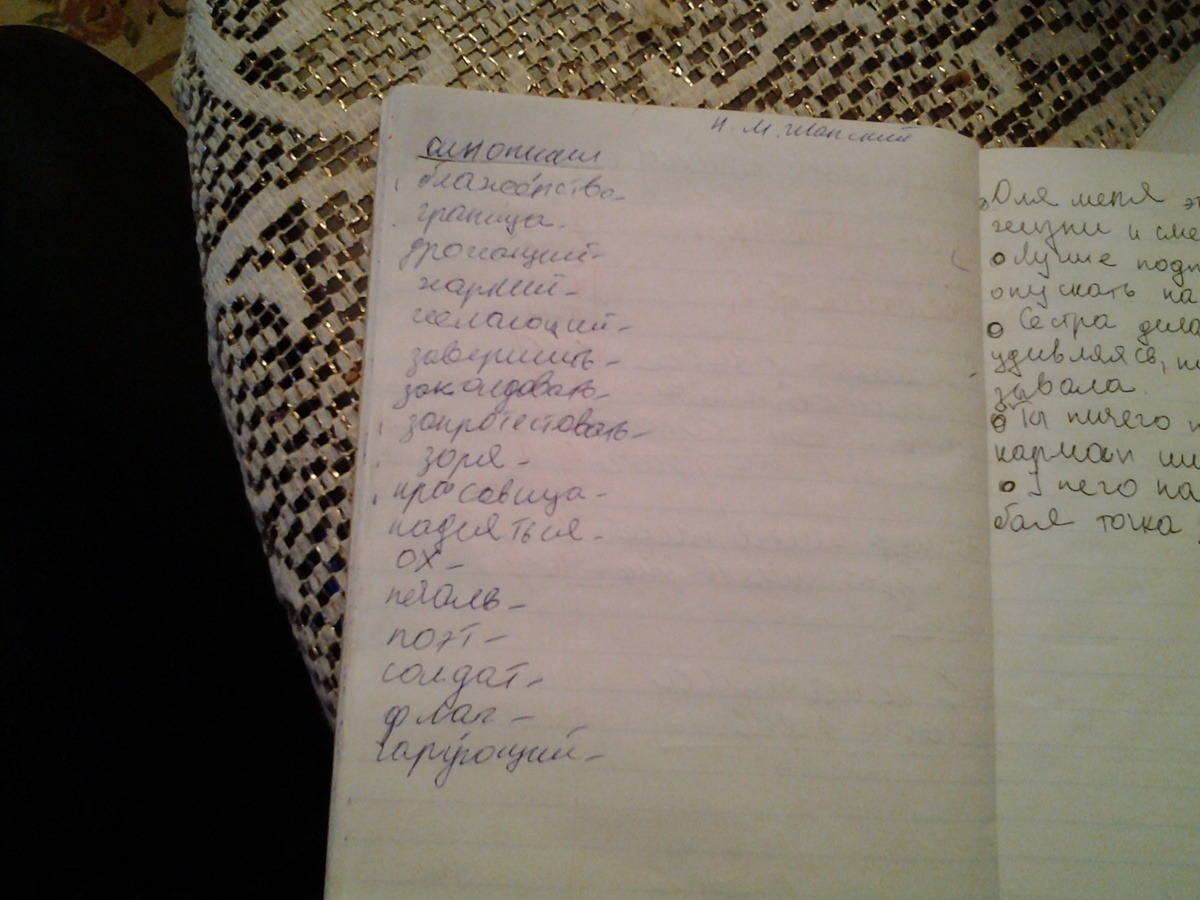 Н. М. Шанский
синонимы
блаженство-
граница-
дрожащий-
жаркий-
желающий-
завершить-
заколдовать-
запротестовать-
заря-
красавица-
надеяться-
ох-
печаль-
поэт-
солдат-
флаг-
чарующий-
Для меня
жизни и
Лучше
опускать на
Сестра
удивляясь,
зывала.
Ты ничего
карман
У него на
бая точка